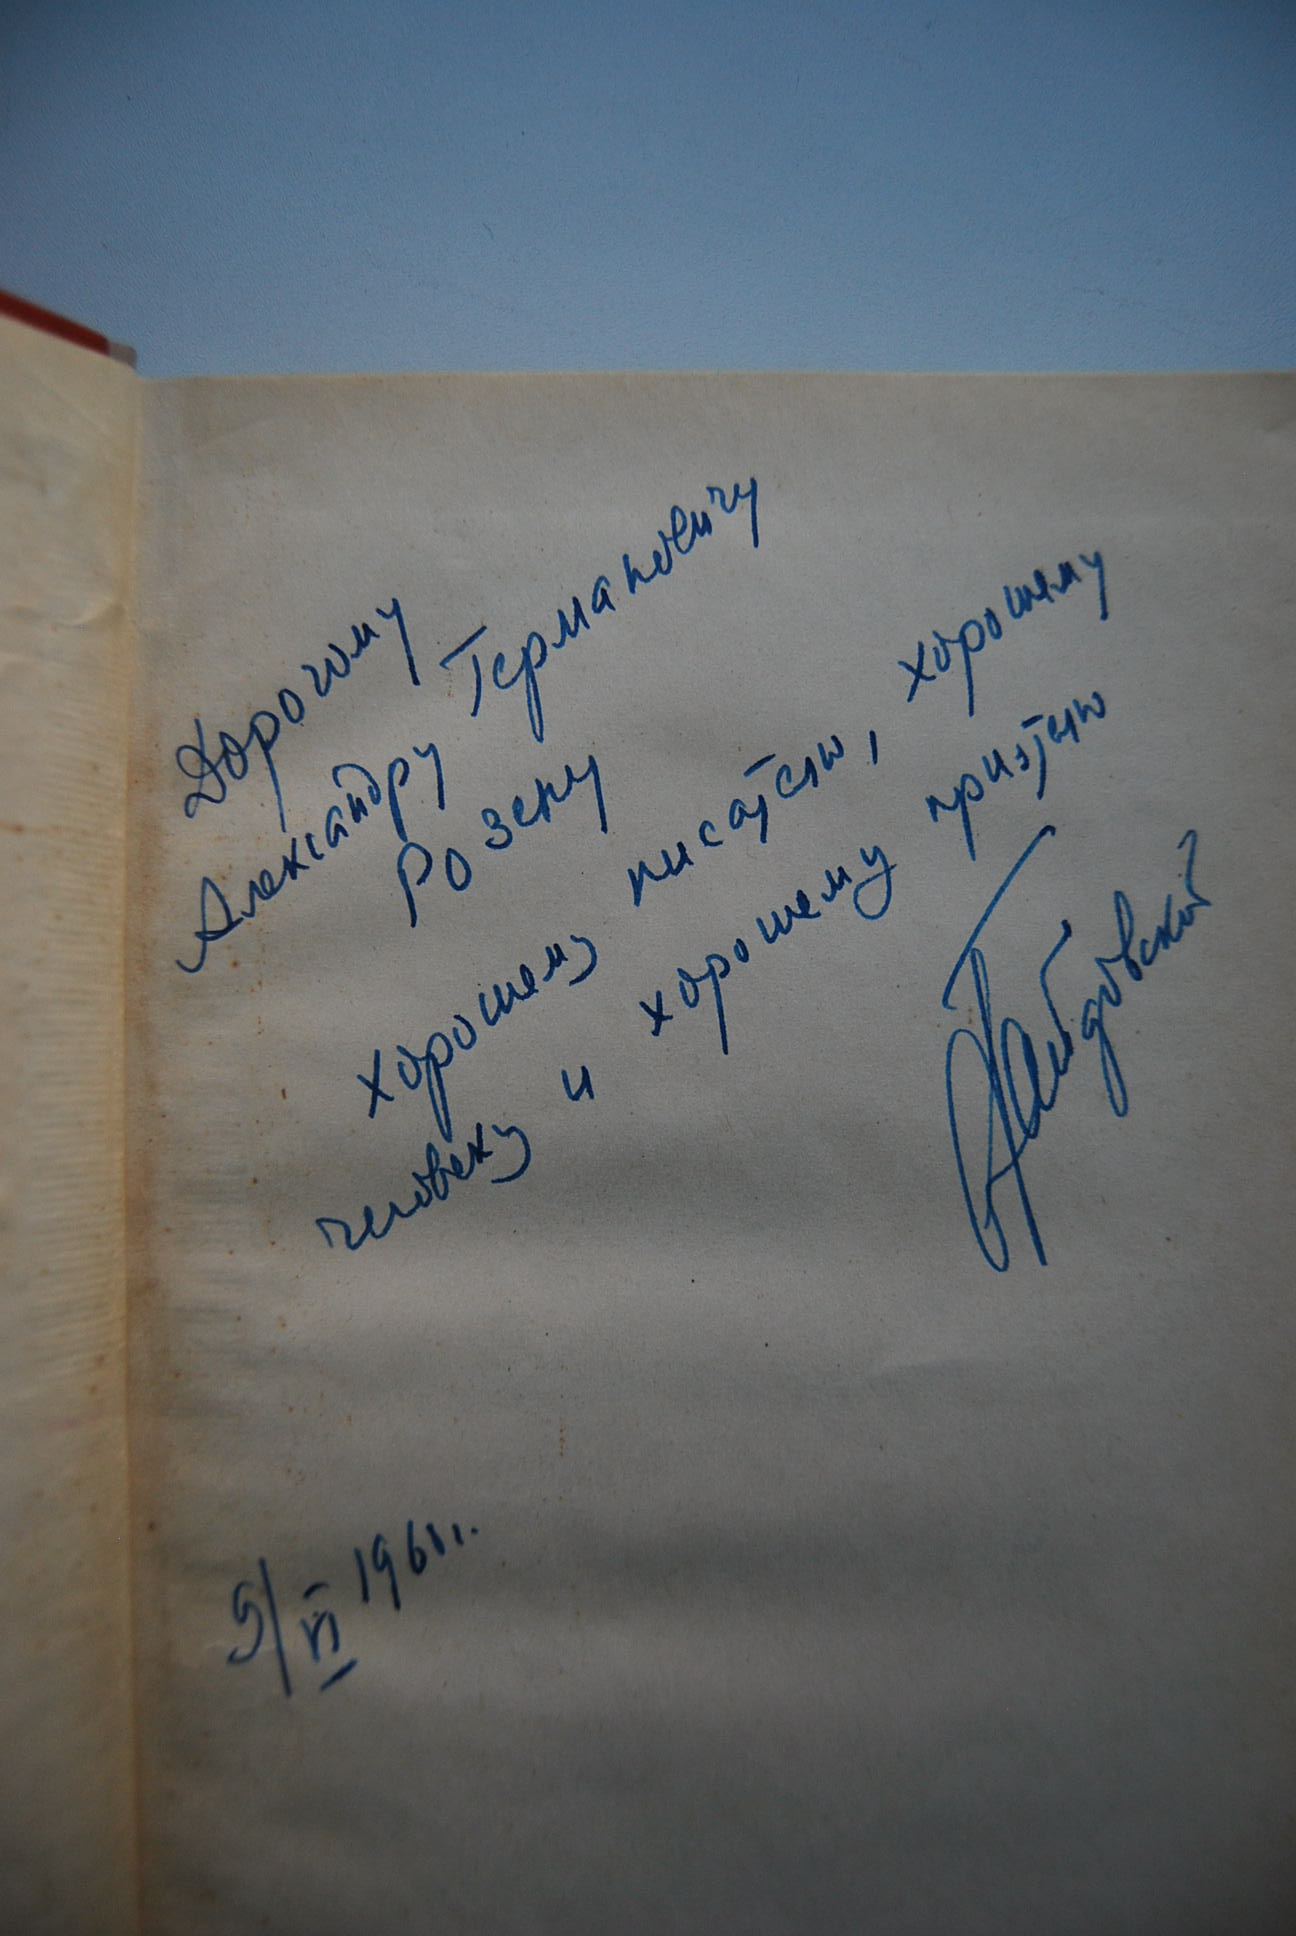 Дорогому
Александру Германовичу
Розену
хорошему писателю, хорошему
человеку и хорошему приятелю
5/VI 1961г.